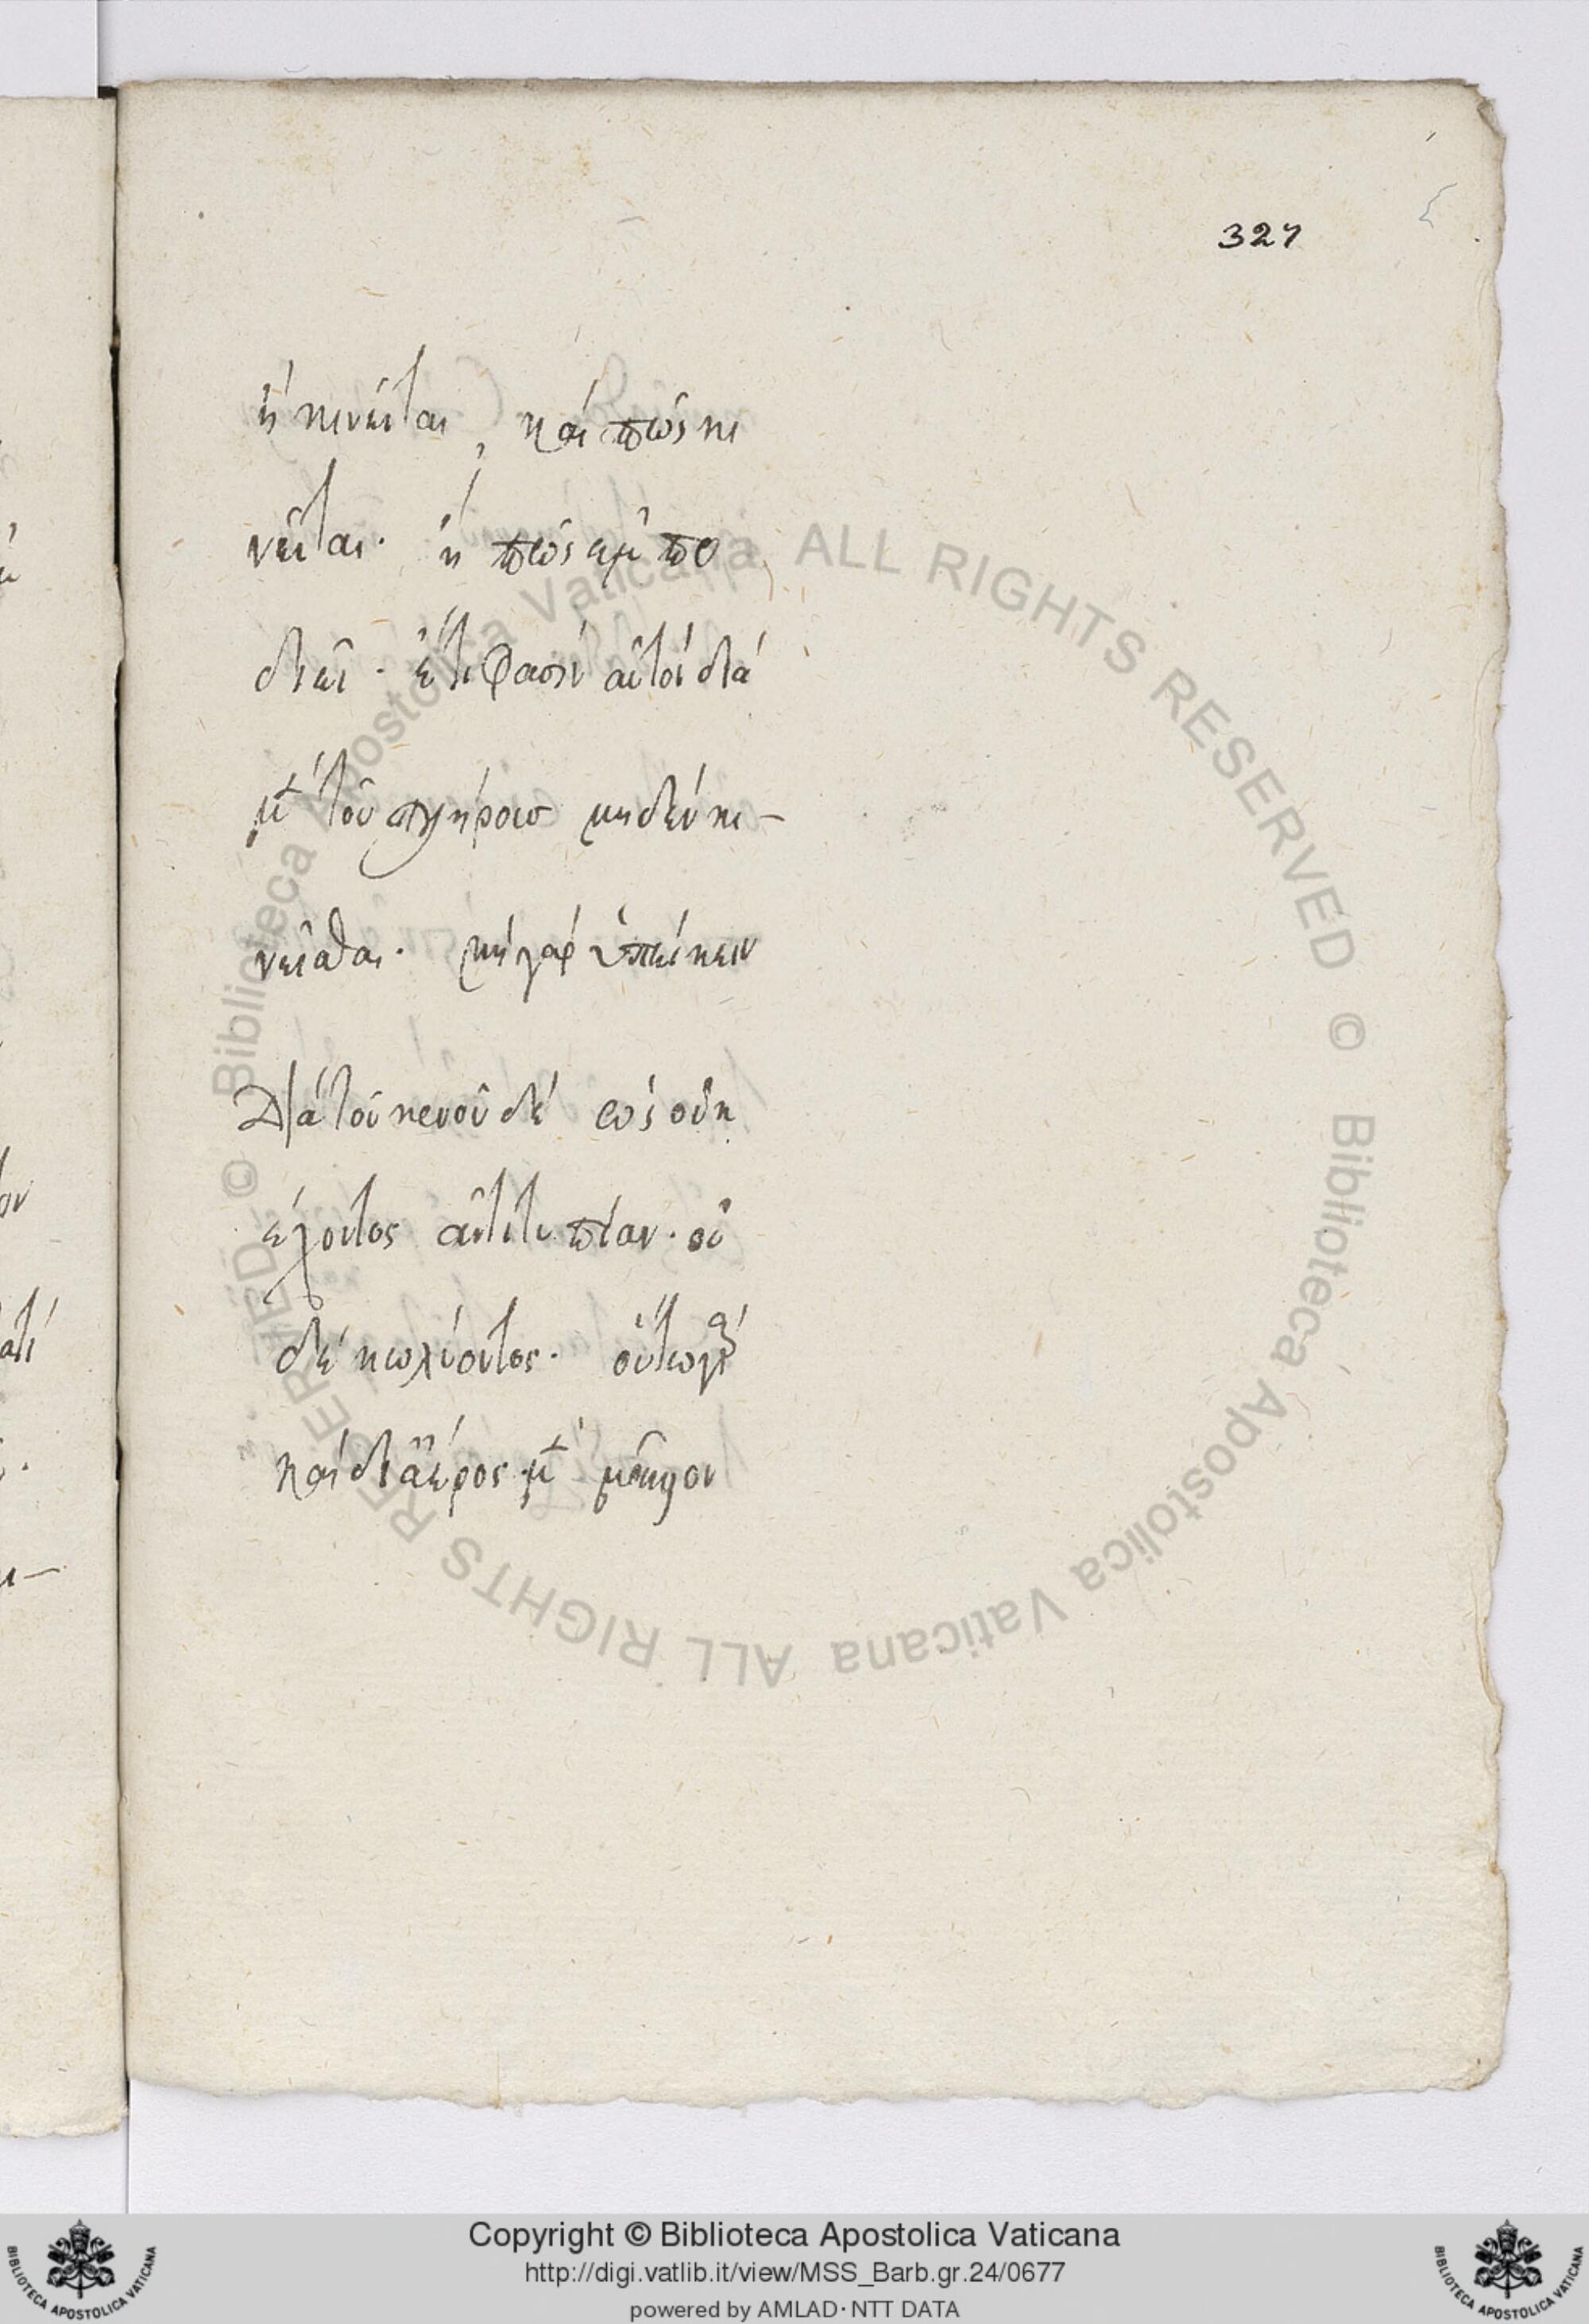 327
ἢ κινεῖται, καὶ πῶς κι
νεῖται. ἢ πῶς ἐμπο
διεῖ. ἔτι φασὶν αὐτοὶ διὰ
μ̀ τοῦ πλήρους μηδὲν κι-
νεῖσθαι. μὴ γὰρ ὑπείκειν
Διὰ τοῦ κενοῦ δὲ ὡς οὐκ
ἔχοντος ἀντιτυπίαν. οὐ
δὲ κωλύοντος. οὕτω γ̀
καὶ δι' ἀέρος μ̀
Biblioteca Apostolica Vaticana ALL RIGHTS RESERVED ©
Biblioteca Apostolica Vaticana ALL RIGHTS RESERVED ©
Copyright © Biblioteca Apostolica Vaticana
http://digi.vatlib.it/view/MSS_Barb.gr.24/0677
powered by AMLAD·NTT DATA
BIBLIOTECA APOSTOLICA VATICANA
BIBLIOTECA APOSTOLICA VATICANA